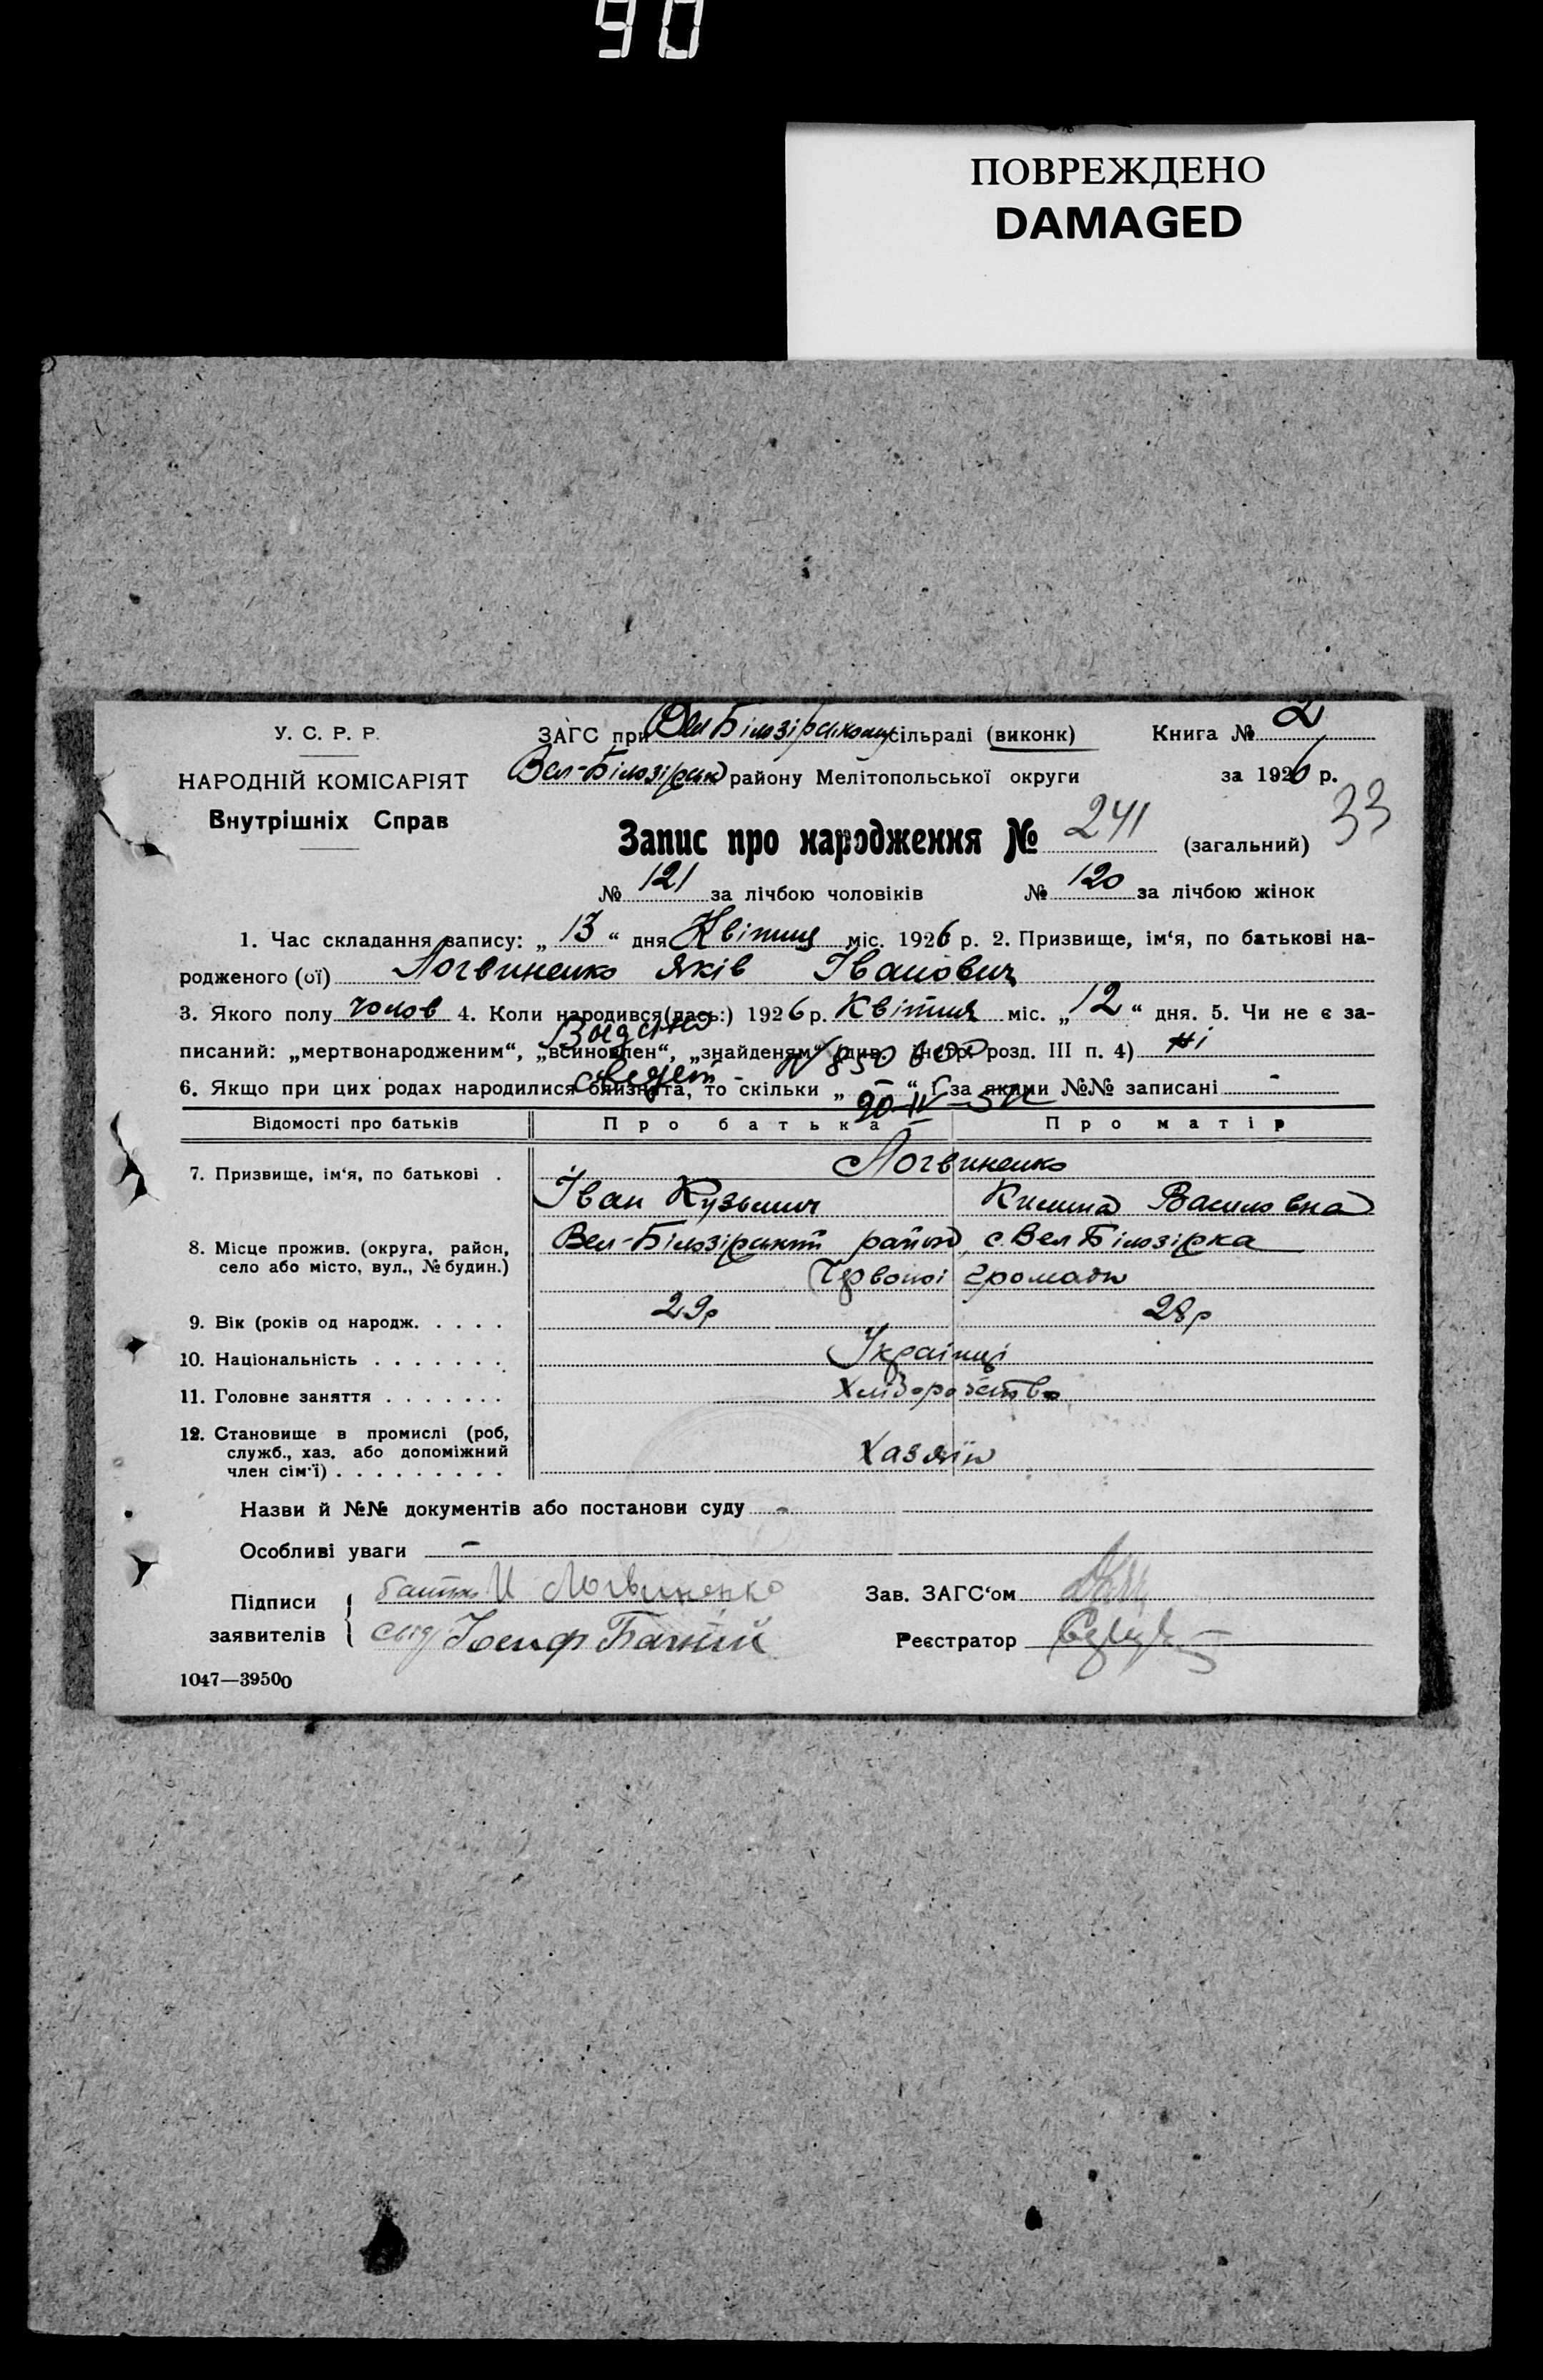 90
ПОВРЕЖДЕНО
DAMAGED
У. С. Р. Р.
НАРОДНІЙ КОМІСАРІЯТ
Внутрішніх Справ
ЗАГС при Вел Білозірському сільраді (виконк)
Книга № 2
Вел-Білозірськ району Мелітопольської округи
за 1926 р.
33
Запис про народження № 241 (загальний)
№ 121 за лічбою чоловіків № 120 за лічбою жінок
1. Час складання запису: „ 13 “ дня Квітня міс. 1926 р. 2. Призвище, ім‘я, по батькові на-
родженого (ої) Логвиненко Яків Іванович
3. Якого полу чолов 4. Коли народився(лась:) 1926 р. Квітня міс. „ 12 “ дня. 5. Чи не є за-
Видано
писаний: „мертвонародженим“, „всиновлен“, „знайденям“ (див. інстр. розд. III п. 4) Ні
свидет - № 850
6. Якщо при цих родах народилися близнята, то скільки „ – “ і за якими №№ записані -
20-IV-
Відомості про батьків Про батька Про матір
7. Призвище, ім‘я, по батькові . Логвиненко
Іван Кузьмич Килина Василовна
8. Місце прожив. (округа, район, село або місто, вул., № будин.) Вел-Білозірський район, с. Вел Білозірка
Червоної громади
9. Вік (років од народж. . . . . 29р 28р
10. Національність . . . . . . . Українці
11. Головне заняття . . . . . . . Хліборобство
12. Становище в промислі (роб, служб., хаз. або допоміжний член сім‘ї) . . . . . . . . . Хазяїн
Назви й №№ документів або постанови суду -
Особливі уваги -
Підписи заявителів
батько И Логвиненко
свід Іосиф
Зав. ЗАГС‘ом
Реєстратор
1047—39500